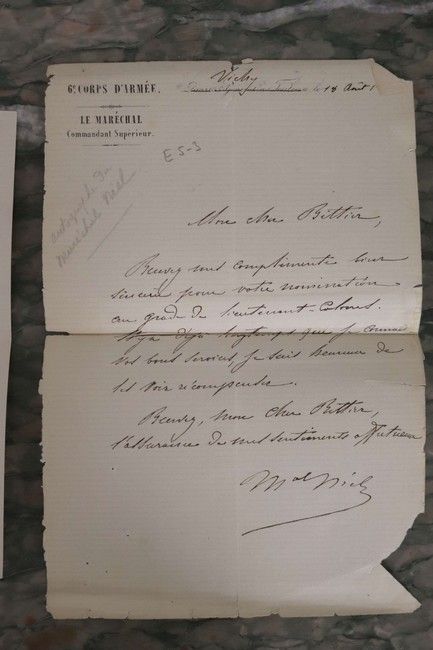 6e CORPS D'ARMÉE.
LE MARÉCHAL
Commandant Supérieur.
Vichy
le 18 Août 1
E 5-3
autographe du
Maréchal Niel
Mon cher Bittier,
Recevez mes compliments bien
sincères pour votre nomination
au grade de lieutenant-Colonel.
Il y a déjà longtemps que je connais
vos bons services, je suis heureux de
les voir récompensés.
Recevez, mon cher Bittier,
l'assurance de mes sentiments affectueux
Mal Niel